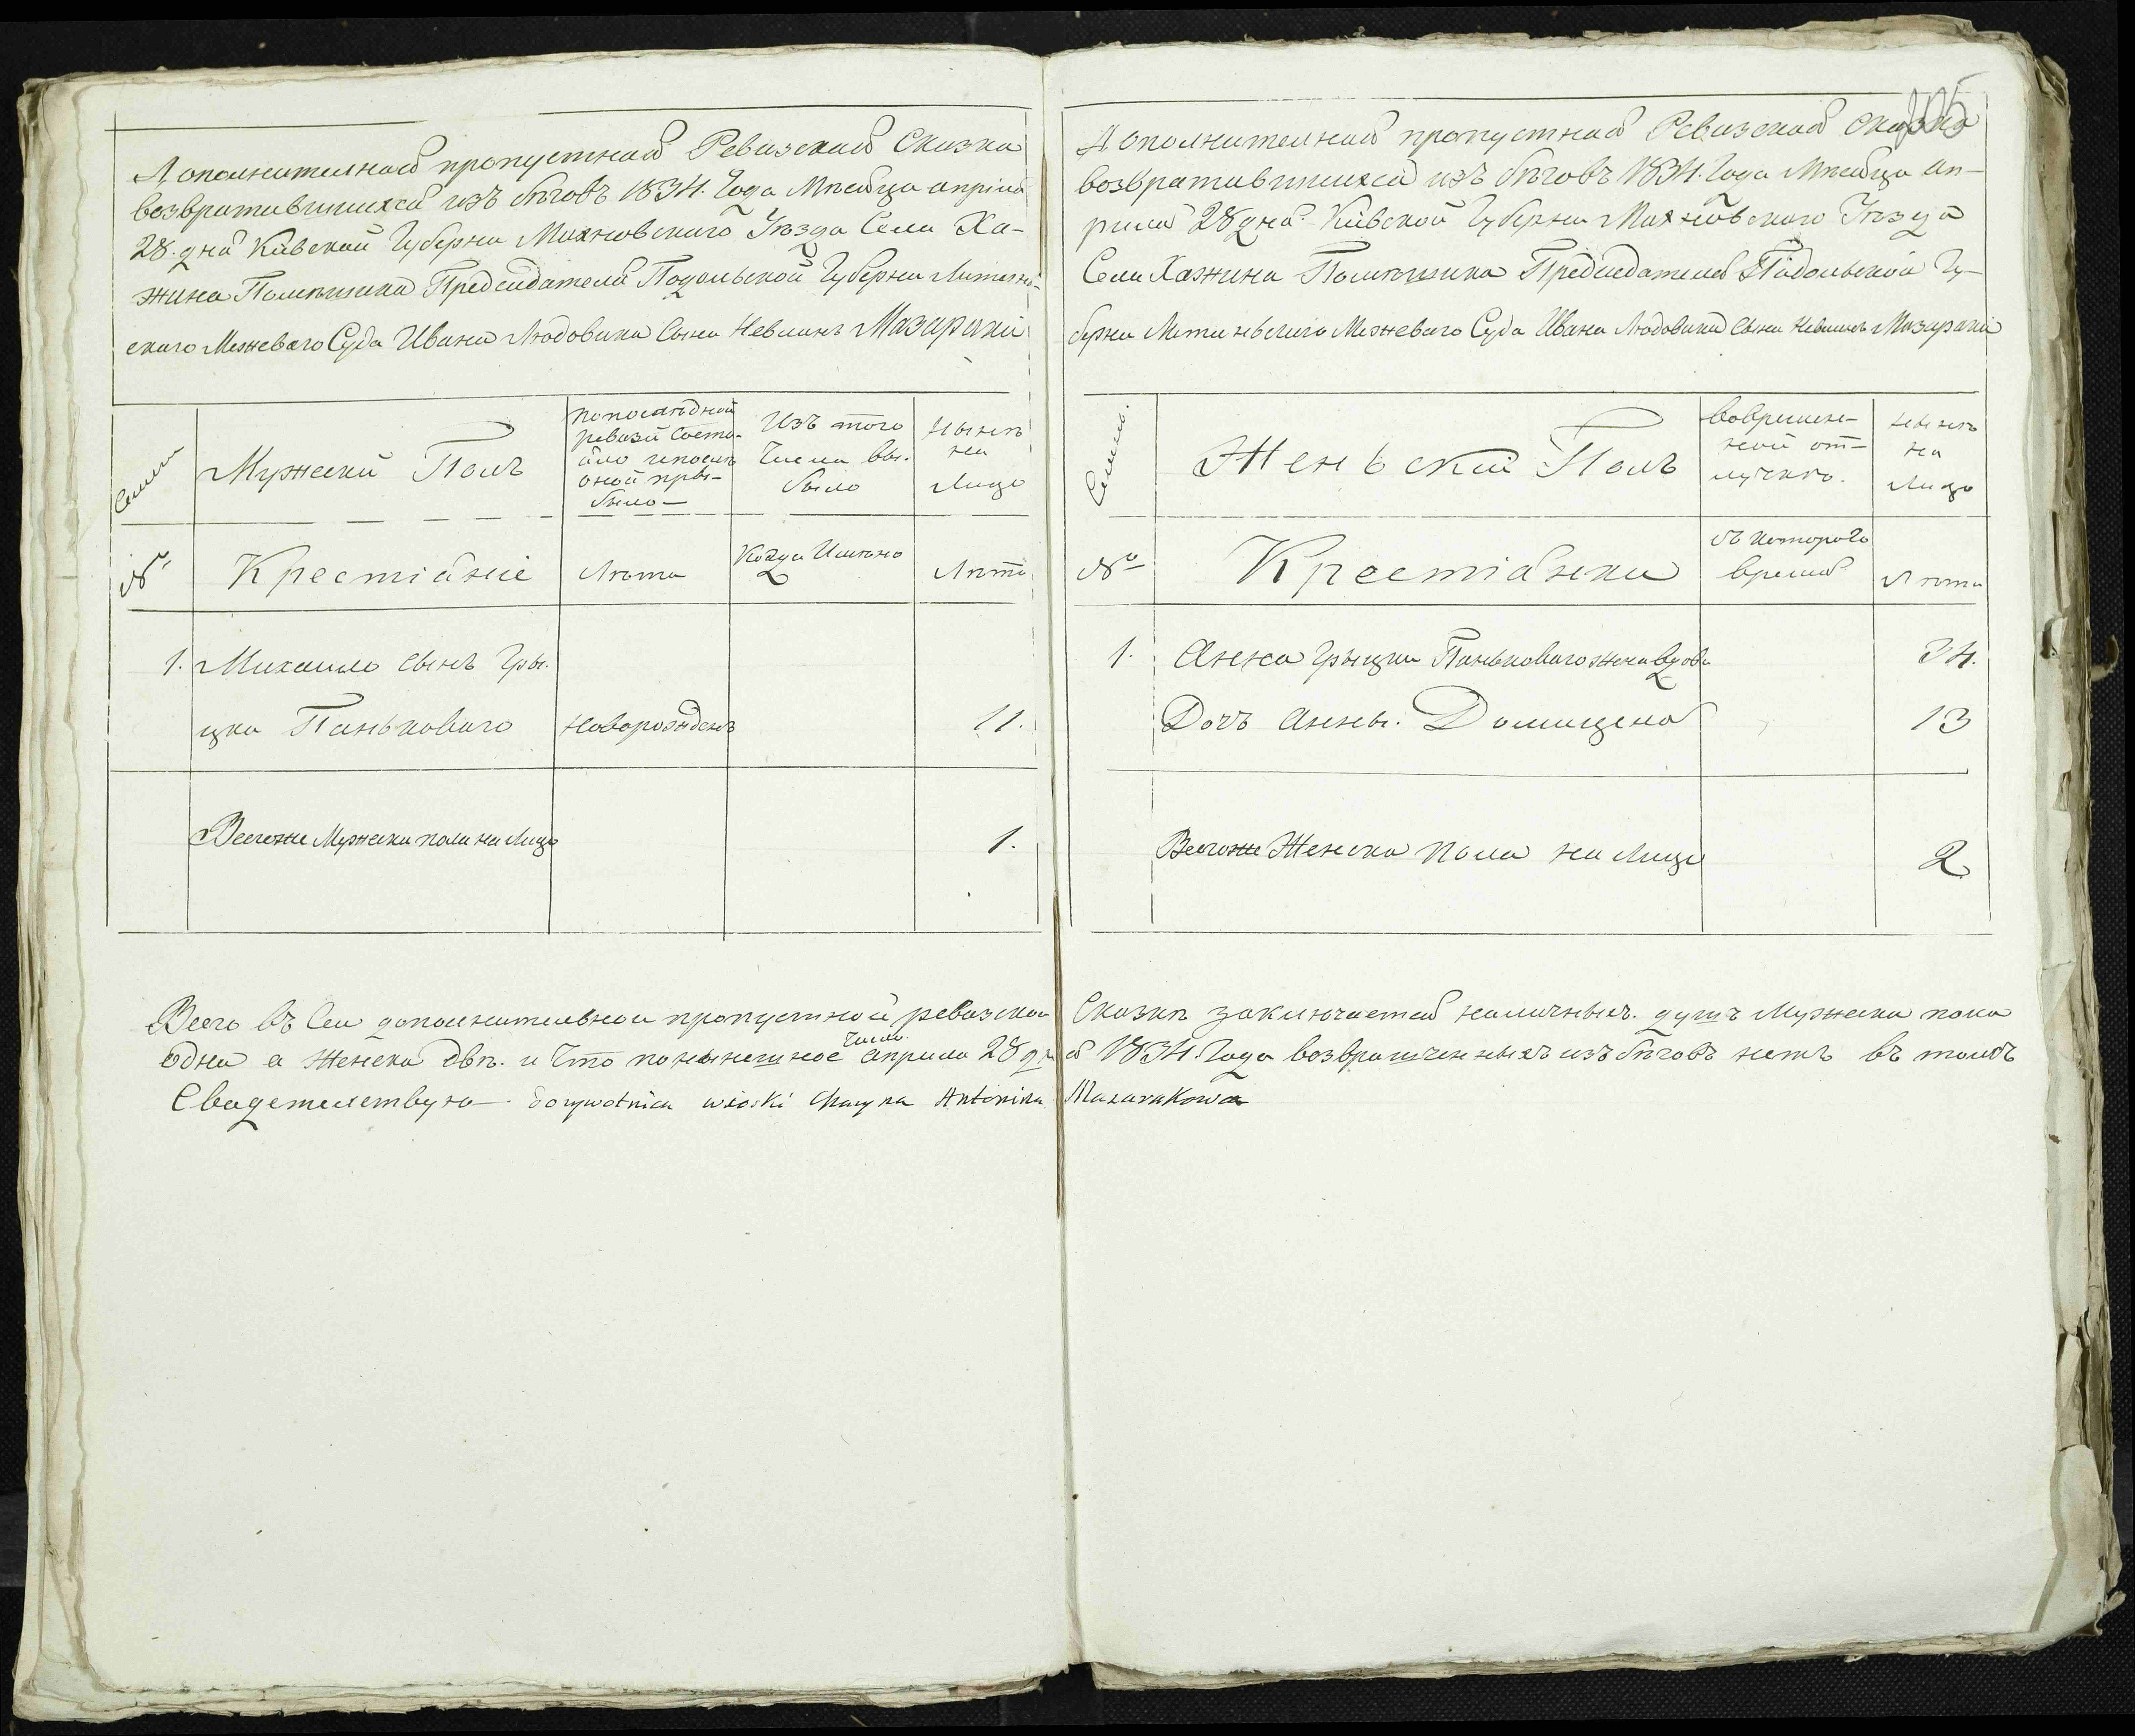 Дополнителная пропустная Ревизская Сказка
возвратившихся изъ бѣговъ 1834. Года Мнсяца апріля
28. дня Кіевской Губерни Махновскаго Уѣзда Села Ха-
жина Помѣщика Предсидателя Подольской Губерни Литинь-
скаго Межеваго Суда Ивана Людовика Сына Мазараки
Мужескій Полъ
попослѣдной
ревизіи состо-
яло ипослѣ
оной при-
было
Изъ того
Числа вы-
было
Нынѣ
на
Лицо
Семьи
№
Крестіяніе
Лѣта
Когда Имянно
Лѣта
1. Михайло сынъ Гри-
цка Панькового
новорожденъ
11.
Всегоже Мужеска пола на Лицо
1.
105
Дополнителная пропустная Ревизская Сказка
возвратившихся изъ бѣговъ 1834. Года Мнсяца ап-
риля 28 дня Кіевской Губерни Махновского Уѣзда
Села Хажина Помѣщика Предсидателя Подольской Гу-
берни Литиньскаго Межеваго Суда Ивана Людовика Сына Мазараки
Семьи.
Женьскій Полъ
Вовремен-
ной от-
лучкѣ.
Нынѣ
на
Лицо
№
Крестіянки
съ Которого
времяни
Лѣта
1. Анна Грыцка Панькового жена вдова
34.
Дочь Анны. Домицеля
13
Всегоже Женска пола на Лицо
2
Всего въ Сей дополнительной пропустной ревизской Сказкѣ заключается наличных. душъ Мужеска пола
одна а Женска двѣ. и Что понынешное Число априля 28 дня 1834. Года возвращенныхъ изъ бѣговъ нетъ въ томъ
Свидетелствую dożywotnica wioski Chazyna Antonina Mazarakowa